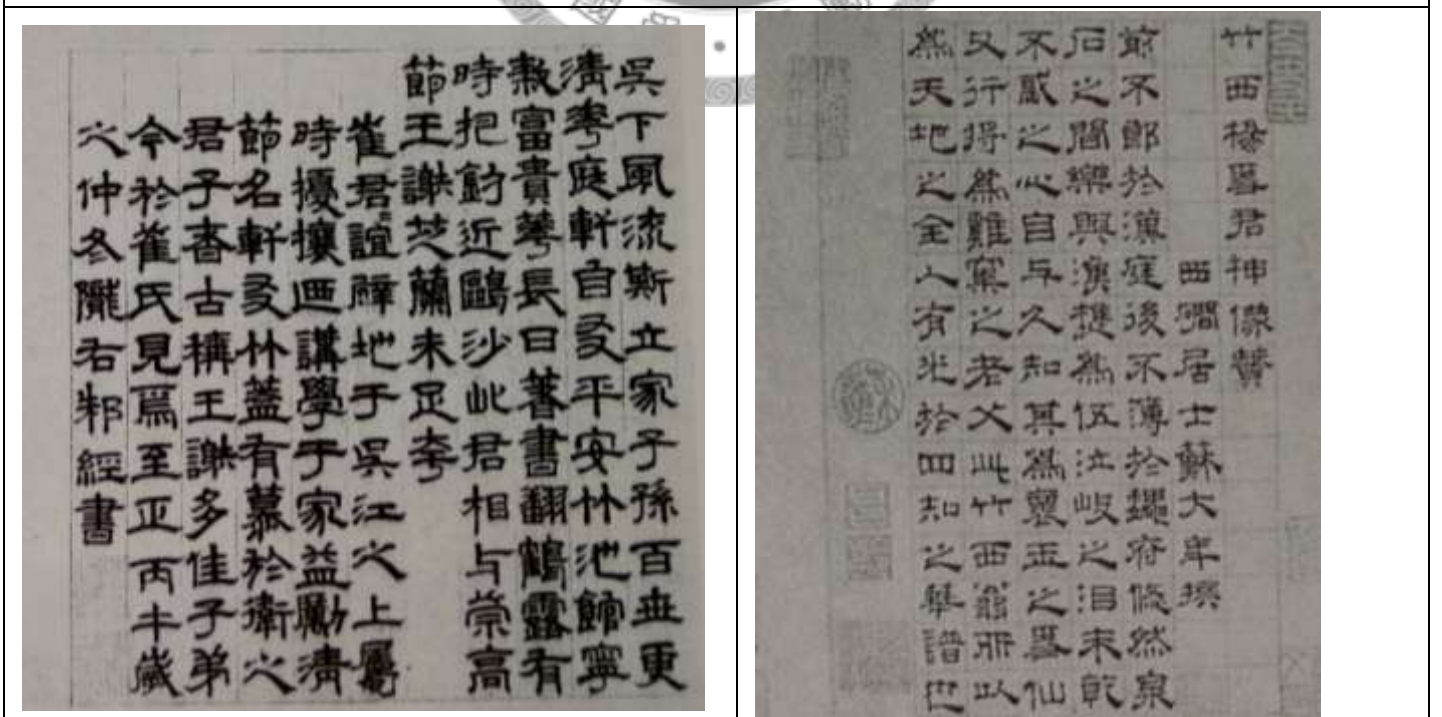 吳下風流斯立家子孫百世更
清華庭軒自友平安竹池館寧
數富貴華長日著書翻鶴露有
時把釣近鷗沙此君相与崇高
節王謝芝蘭未足夸
崔君誼辟地于吳江之上屬
時擾攘迺講學于家益勵清
節名軒友竹蓋有慕於衛之
君子者古稱王謝多佳子弟
今於崔氏見焉至正丙午歲
之仲冬隴右邾經書
竹西楊隱君神像贊
西磵居士蘇大年撰
不郎於漢庭後不薄於府然泉
石之間樂與漁樵為伍泣岐之泪未乾
不惑之心自与久知其為玉之隱仙
又行將為難之老父此竹西翁所以
為天地之全人有光於四知之華譜也